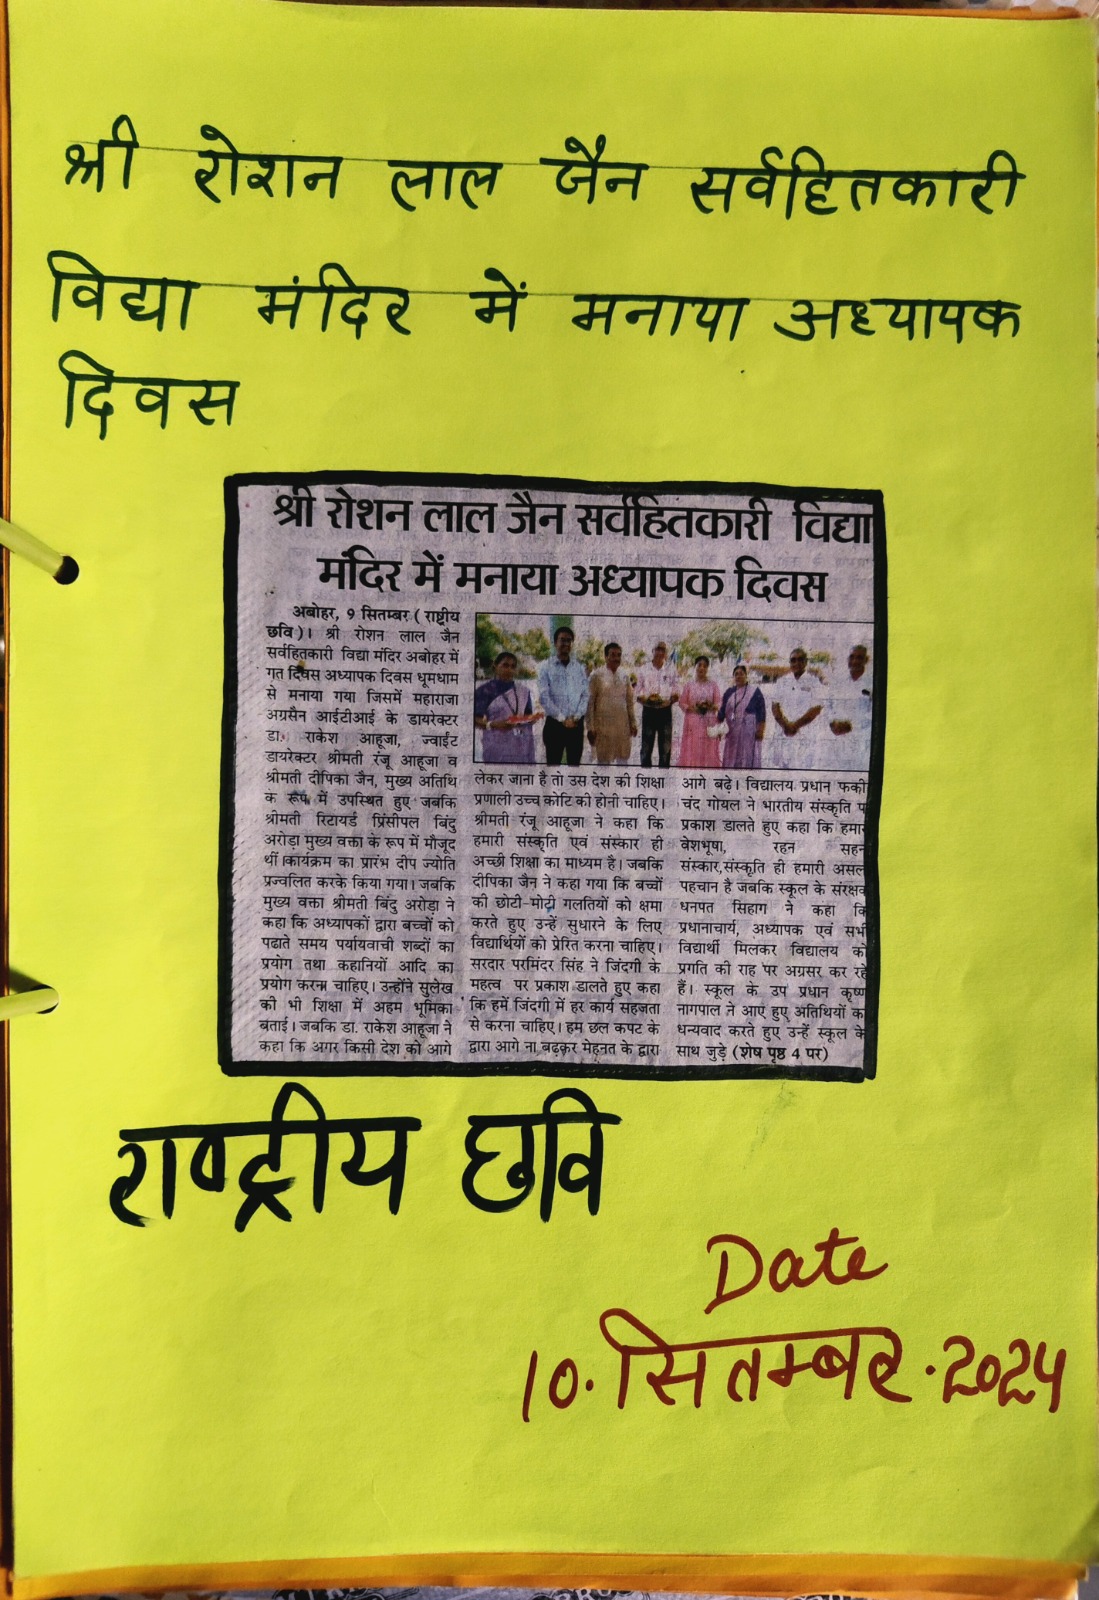 श्री रोशन लाल जैन सर्वहितकारी
विद्या मंदिर में मनाया अध्यापक
दिवस
श्री रोशन लाल जैन सर्वहितकारी विद्या
मंदिर में मनाया अध्यापक दिवस
अबोहर, 9 सितम्बर (राष्ट्रीय
छवि)। श्री रोशन लाल जैन
सर्वहितकारी विद्या मंदिर अबोहर में
गत दिवस अध्यापक दिवस धूमधाम
से मनाया गया जिसमें महाराजा
अग्रसैन आईटीआई के डायरेक्टर
डा. राकेश आहूजा, ज्वाईंट
डायरेक्टर श्रीमती रंजू आहूजा व
श्रीमती दीपिका जैन, मुख्य अतिथि
के रूप में उपस्थित हुए जबकि
श्रीमती रिटायर्ड प्रिंसीपल बिंदु
अरोड़ा मुख्य वक्ता के रूप में मौजूद
थीं।कार्यक्रम का प्रारंभ दीप ज्योति
प्रज्वलित करके किया गया। जबकि
मुख्य वक्ता श्रीमती बिंदु अरोड़ा ने
कहा कि अध्यापकों द्वारा बच्चों को
पढाते समय पर्यायवाची शब्दों का
प्रयोग तथा कहानियों आदि का
प्रयोग करना चाहिए। उन्होंने सुलेख
की भी शिक्षा में अहम भूमिका
बताई। जबकि डा. राकेश आहूजा ने
कहा कि अगर किसी देश को आगे
लेकर जाना है तो उस देश की शिक्षा
प्रणाली उच्च कोटि की होनी चाहिए।
श्रीमती रंजू आहूजा ने कहा कि
हमारी संस्कृति एवं संस्कार ही
अच्छी शिक्षा का माध्यम है। जबकि
दीपिका जैन ने कहा गया कि बच्चों
की छोटी-मोटी गलतियों को क्षमा
करते हुए उन्हें सुधारने के लिए
विद्यार्थियों को प्रेरित करना चाहिए।
सरदार परमिंदर सिंह ने जिंदगी के
महत्व पर प्रकाश डालते हुए कहा
कि हमें जिंदगी में हर कार्य सहजता
से करना चाहिए। हम छल कपट के
द्वारा आगे ना बढ़कर मेहनत के द्वारा
आगे बढ़े। विद्यालय प्रधान फकी
चंद गोयल ने भारतीय संस्कृति प
प्रकाश डालते हुए कहा कि हमार
वेशभूषा, रहन सहन
संस्कार,संस्कृति ही हमारी असल
पहचान है जबकि स्कूल के संरक्षक
धनपत सिहाग ने कहा कि
प्रधानाचार्य, अध्यापक एवं सभी
विद्यार्थी मिलकर विद्यालय को
प्रगति की राह पर अग्रसर कर रहे
हैं। स्कूल के उप प्रधान कृष्ण
नागपाल ने आए हुए अतिथियों का
धन्यवाद करते हुए उन्हें स्कूल के
साथ जुड़े (शेष पृष्ठ 4 पर)
राष्ट्रीय छवि
Date
10. सितम्बर . 2024